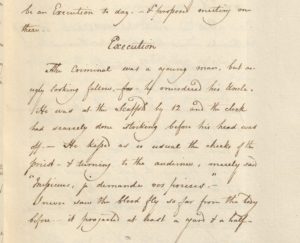 be an Execution to day – & proposed meeting on
there.
Execution
The Criminal was a young man, but an
ugly looking fellow, for he murdered his Uncle.
He was at the Scaffold by 12 and the clock
had scarcely done striking before his head was
off – He kissed as is usual the cheeks of the
priest & turning to the audience, merely said
"Messieurs, je demande vos prieres." –
I never saw the blood fly so far from the body
before – it projected at least a yard & a half –